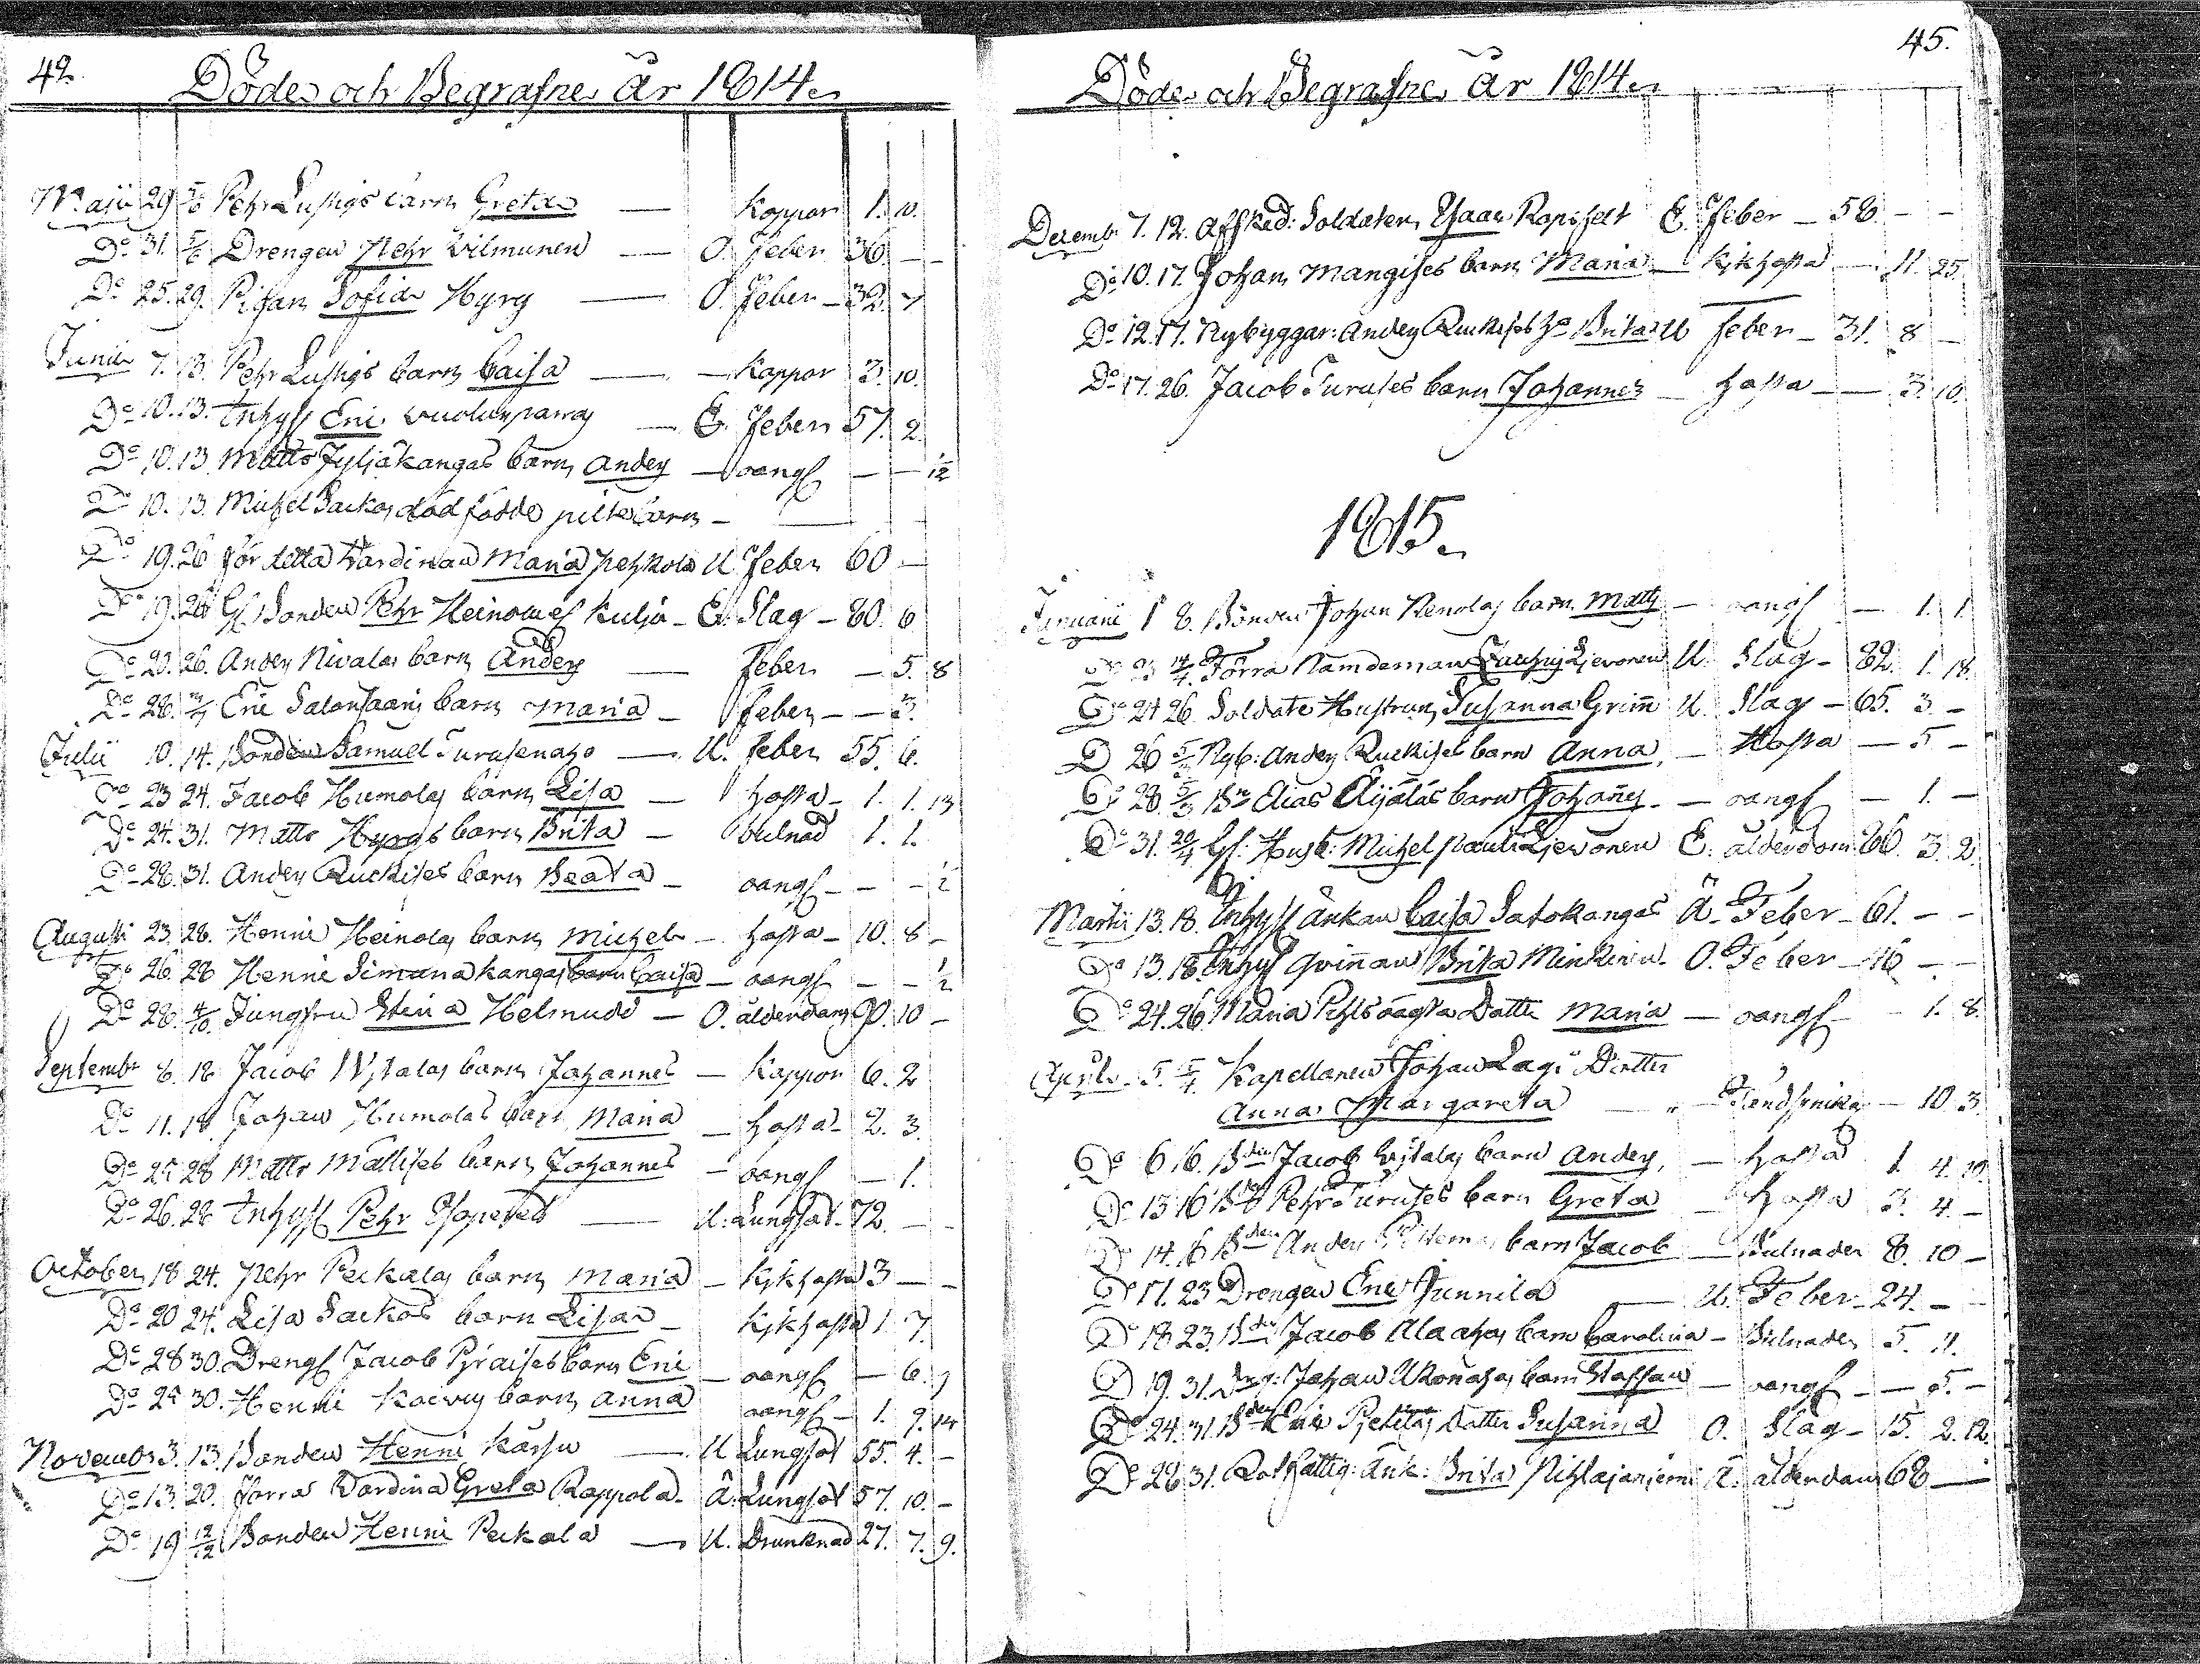 42.
Döde och Begrafne år 1814.
Maji 29 5/6 Pehr Lustigs barn Greta — Koppor 1. 10.
Do 31. 5/6 Drengen Pehr Vilmunen — O. feber 36 — —
Do 25. 29. Pigan Sofia Hyry — O. feber — 32. 7
Junii 7. 13. Pehr Lustigs barn Caisa — Koppor 3. 10.
Do 10. 13. Inhys Eric — E. feber 57. 2.
Do 10. 13. Matts Jyliäkangas barn Anders — oangf — — 12
Do 10. 13. Michel Sarkas död födde piltebarn —
Do 19. 26 för detta Vardinan Maria Pehkola U. feber 60 —
Do 19. 26 Gl. Bonden Pehr Heinonen Kulju — E. Slag — 80. 6
Do 20. 26. Anders Nivalas barn Anders — feber — 5. 8
Do 28. 3/7 Eric barn Maria — feber — — 3.
Julii 10. 14. Bonden Samuel Turusenaho — U. feber 55. 6.
Do 23 24. Jacob Humolas barn Lisa — hosta — 1. 1. 13
Do 24. 31. Matts Hyrys barn Brita — bulnad 1. 1.
Do 28. 31. Anders Ruckises barn Beata — oangf — — — 1/2
Augusti 23. 28. Henric Heinolas barn Michel — hosta — 10. 8 —
Do 26. 28 Henric Simanakangas barn Caisa — oangf — — 1/2
Do 28. 4/10 Jungfru Stina Helmudi — O. ålderdom 90. 10 —
Septembr 8. 18 Jacob Wjtalas barn Johannes — Koppor 6. 2
Do 11. 18. Johan Humolas barn Maria — hosta — 2. 3.
Do 25 28 Matts Mattises barn Johannes — oangf — 1.
Do 26. 28 Inhys Pehr — U. Lungsot — 72. — —
October 18 24. Pehr Peckalas barn Maria — Kjkhosta 3 — —
Do 20 24. Lisa Sarkas barn Lisa — Kjkhosta 1. 7.
Do 28 30. Drengs Jacob barn Eric — oangf — 6. 9
Do 25 30. Henric barn Anna oangf — 1. 9. 14
Novembr 3. 13. Bonden Henric Karsu — U. Lungsot 55. 4. —
Do 13. 20. förra Vardina Greta Rappola — Ä. Lungsot 57. 10. —
Do 19 12/12 Bonden Henric Peckala — U. Drunknad 27. 7. 9.
45.
Döde och Begrafne år 1814.
Decembr 7. 12. Afsked: Soldaten Esaac Rapsfelt E. feber — 58 — —
Do 10. 17. Johan Mangises barn Maria — Kjkhosta — 11. 25.
Do 12. 17. Nybyggar: Anders Ruckises ho Brita U feber — 31. 8 —
Do 17. 26. Jacob Turuses barn Johannes — hosta — 3. 10.
1815.
Januarii 1 8. Bonden Johan Kenolas barn Matts — oangf — 1. 1.
Do 23 14/4. Förra Nämdeman Ljevonen U. Slag — 82. 1. 18.
Do 24 26. Soldats Hustrun Susanna Grim̄ U. Slag — 65. 3 —
Do 26 5/3 Nyb: Anders Ruckises barn Anna, — Hosta — 5 —
Do 28 5/3 Bn Elias Äijäläs barn Johan̄es — oangf — 1. —
Do 31. 20/4 Gl: Husb: Michel Ljevonen E. ålderdom 86. 3. 2.
Martii 13. 18. Inhys änkan Caisa Satokangas Ä. Feber — 61. — —
Do 13. 18. Inhys Qvin̄an Brita Minkinen O. Feber — 46 — —
Do 24. 26. Maria Dotter Maria — oangf — 1. 8.
Aprils 5. 5/4 Kapellanen Johan Lagi Dotter
Anna Margareta — — 10 3
Do 6 16. Bden Jacob Wjtalas barn Anders, — hosta 1. 4. 20.
Do 13 16 Bden Pehr Turuses barn Greta — hosta 3. 4. —
Do 14. 16 Bden Anders barn Jacob — Bulnader 8. 10 —
Do 17. 23 Drengen Eric Junnila — U. Feber — 24. — —
Do 18 23. Bden Jacob Alaahos barn Carolina — Bulnader 5. 11.
Do 19. 31. Dreng: Johan Ukonahos barn Staffan — oangf — — 5. —
Do 24. 31. Bden Eric Dotter Susanna O. Slag — 15. 2. 12.
Do 28 31. Rotfattig: Änk: Brita Ä. ålderdom 68 —